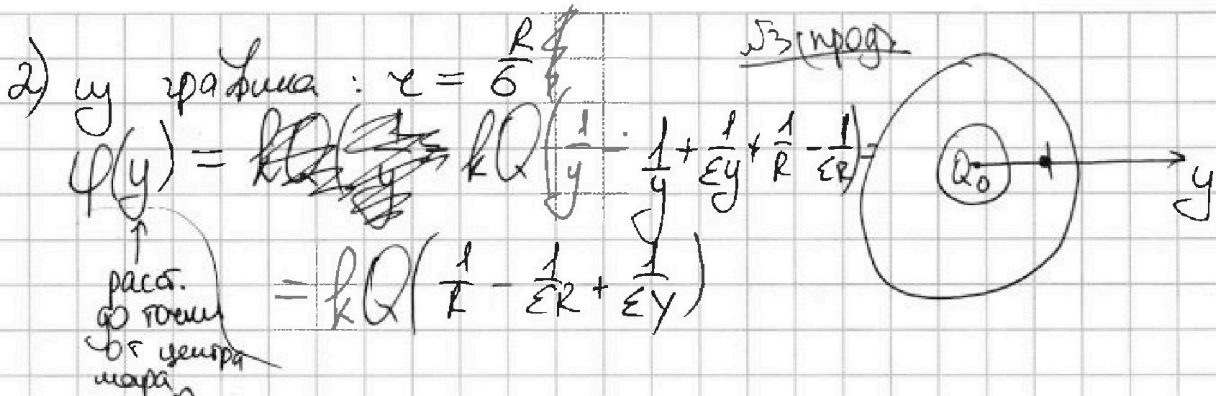 №3 (прод)
2) из графика : r = R/6
φ(y) = kQ(1/y - 1/y + 1/εy + 1/R - 1/εR) =
= kQ(1/R - 1/εR + 1/εy)
Q
0
y
расст.
до точки
от центра
шара